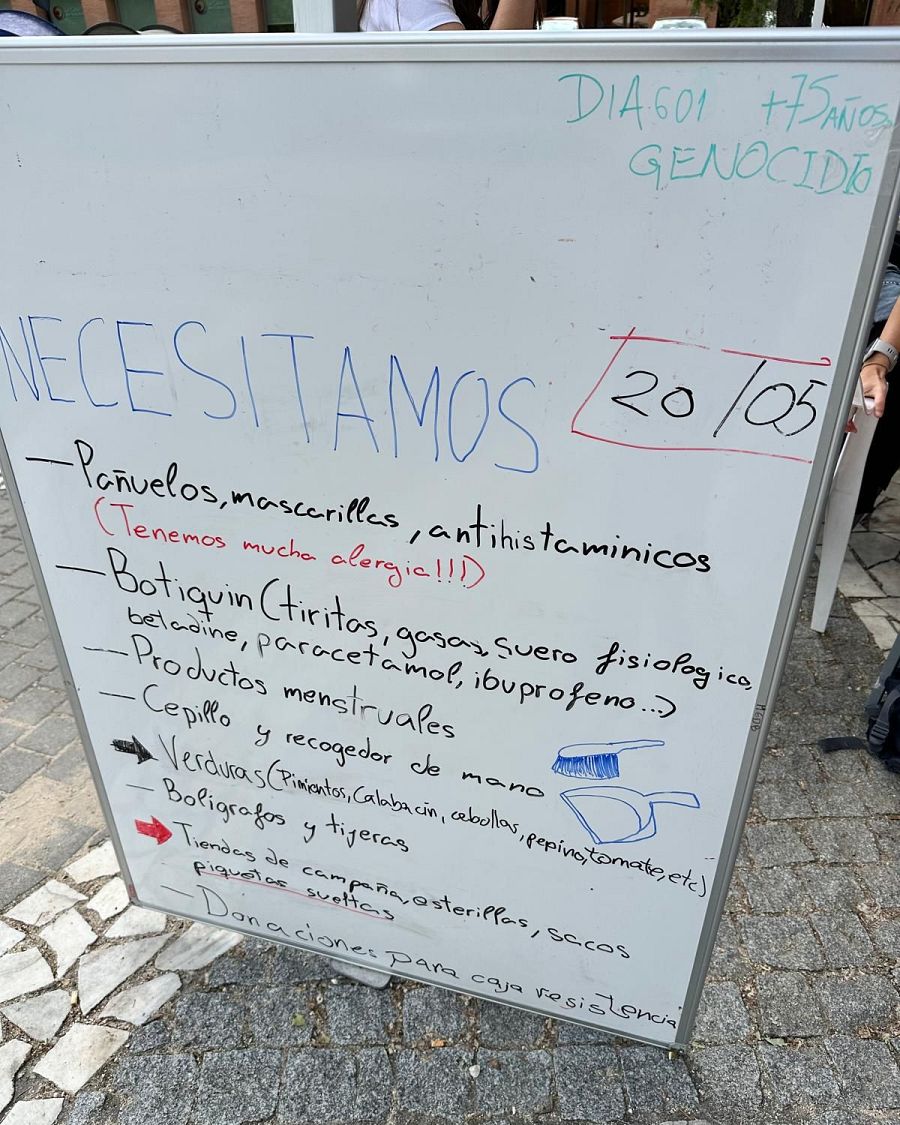 DIA 601 +75 AÑOS
GENOCIDIO
NECESITAMOS
20/05
— Pañuelos, mascarillas, antihistaminicos
(Tenemos mucha alergia!!!)
— Botiquin (tiritas, gasas, suero fisiologico,
betadine, paracetamol, ibuprofeno...)
— Productos menstruales
— Cepillo y recogedor de mano
Verduras (Pimientos, Calabacin, cebollas, pepino, tomate, etc)
— Boligrafos y tijeras
Tiendas de campaña, esterillas, sacos
piquetas sueltas
— Donaciones para caja resistencia